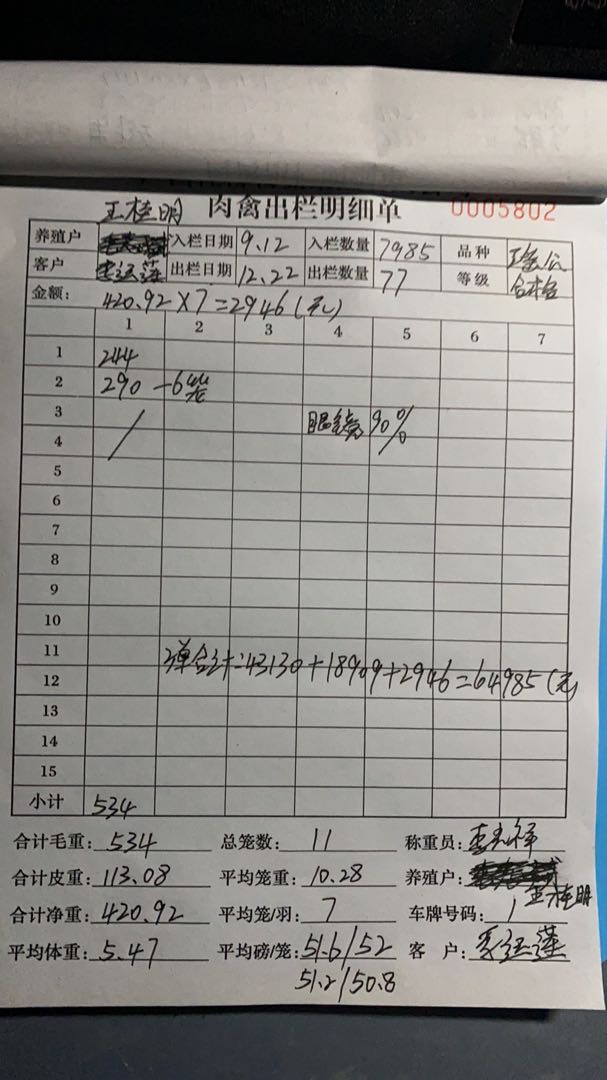 王桂明 肉禽出栏明细单 0005802
养殖户 入栏日期 9.12 入栏数量 7985 品种
客户 出栏日期 12.22 出栏数量 77 等级 合格
金额: 420.92×7=2946(元)
1 2 3 4 5 6 7
1 244
2 290 -6
3 90%
4
5
6
7
8
9
10
11 3单合计:43130+18909+2946=64985(元)
12
13
14
15
小计 534
合计毛重: 534 总笼数: 11 称重员:
合计皮重: 113.08 平均笼重: 10.28 养殖户: 王桂明
合计净重: 420.92 平均笼/羽: 7 车牌号码: /
平均体重: 5.47 平均磅/笼: 51.6/52 客 户:
51.2/50.8